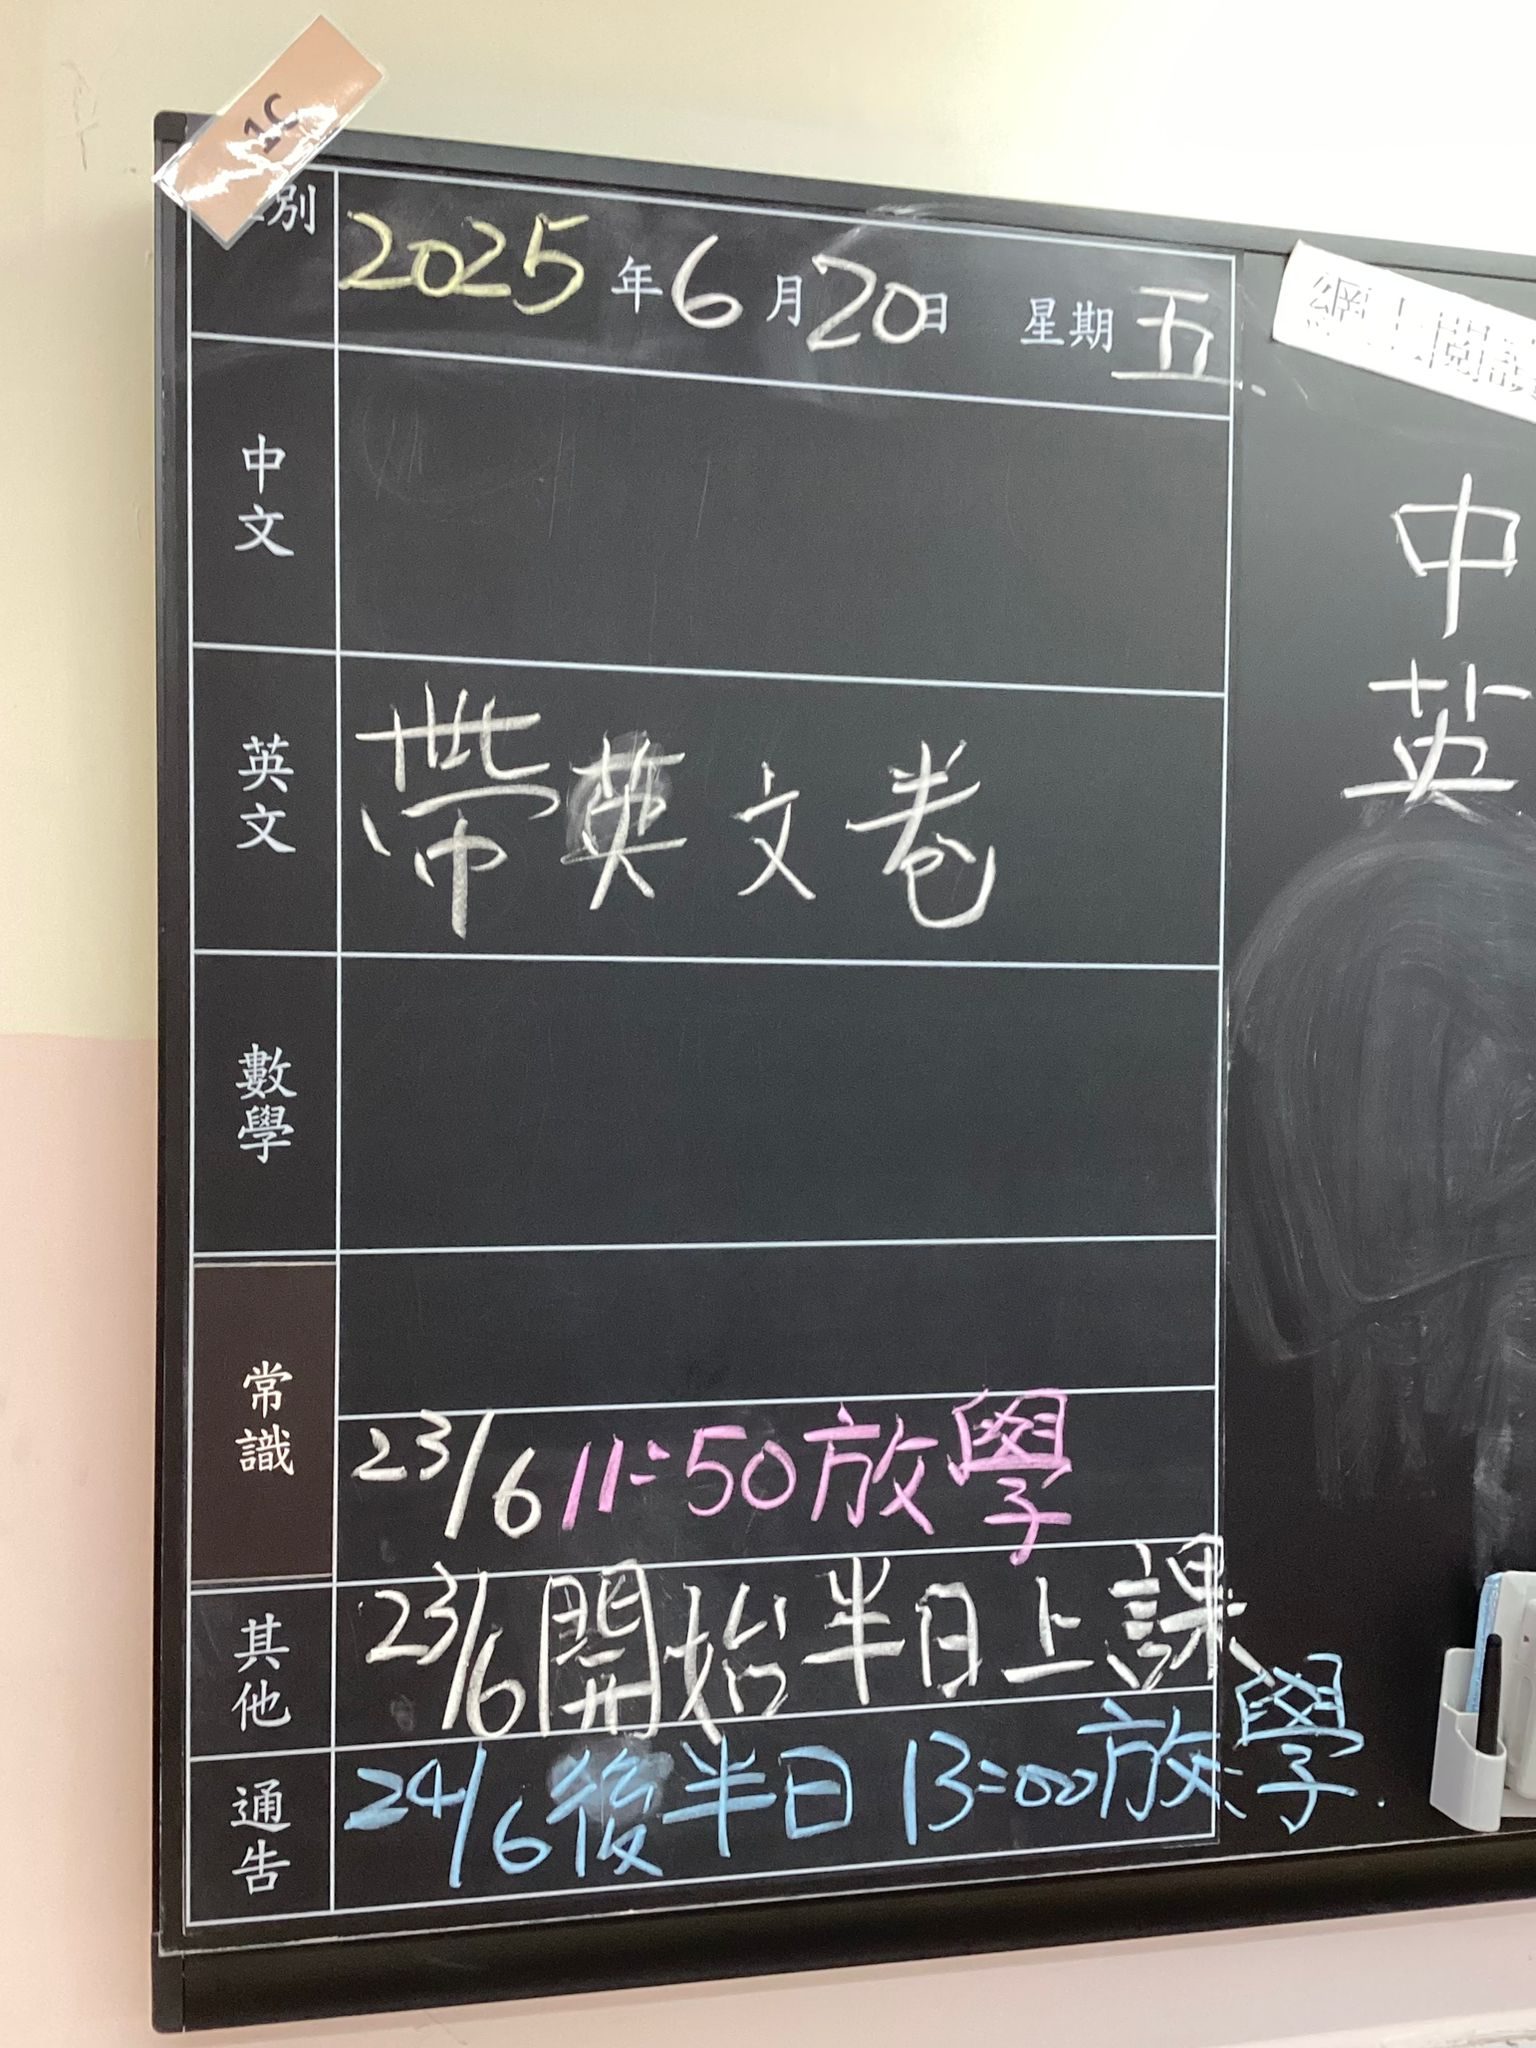 1C
別
2025年6月20日 星期五
中文
英文 帶英文卷
數學
常識
23/6 11:50放學
其他 23/6開始半日上課
通告 24/6後半日 13:00放學.
網上閱讀
中
英